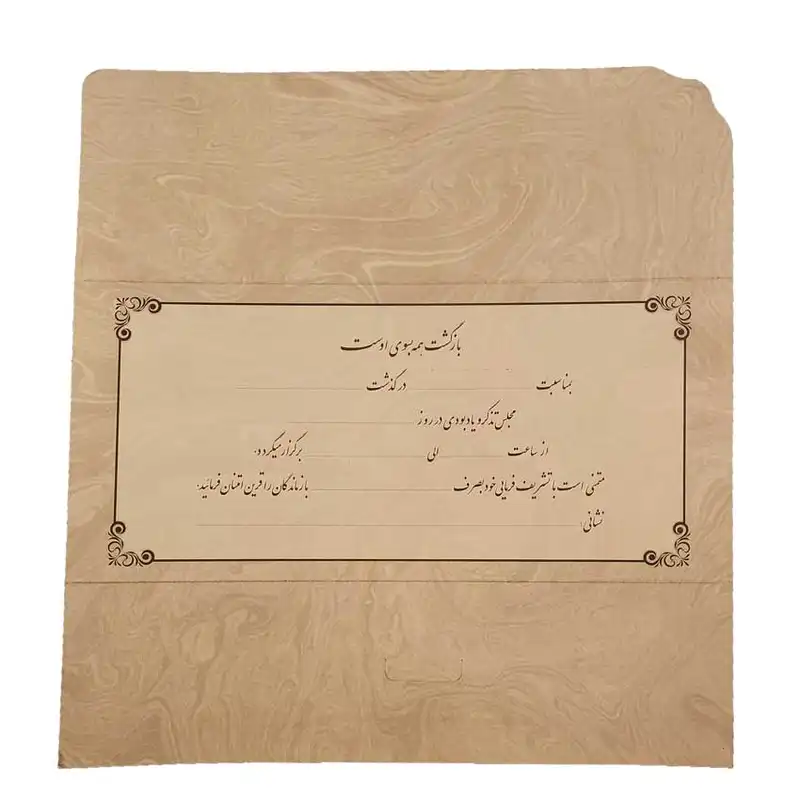 بازگشت همه بسوی اوست
بمناسبت در گذشت
مجلس تذکر و یادبودی در روز
از ساعت الی برگزار میگردد.
متمنی است با تشریف فرمایی خود بصرف بازماندگان را قرین امتنان فرمائید.
نشانی: